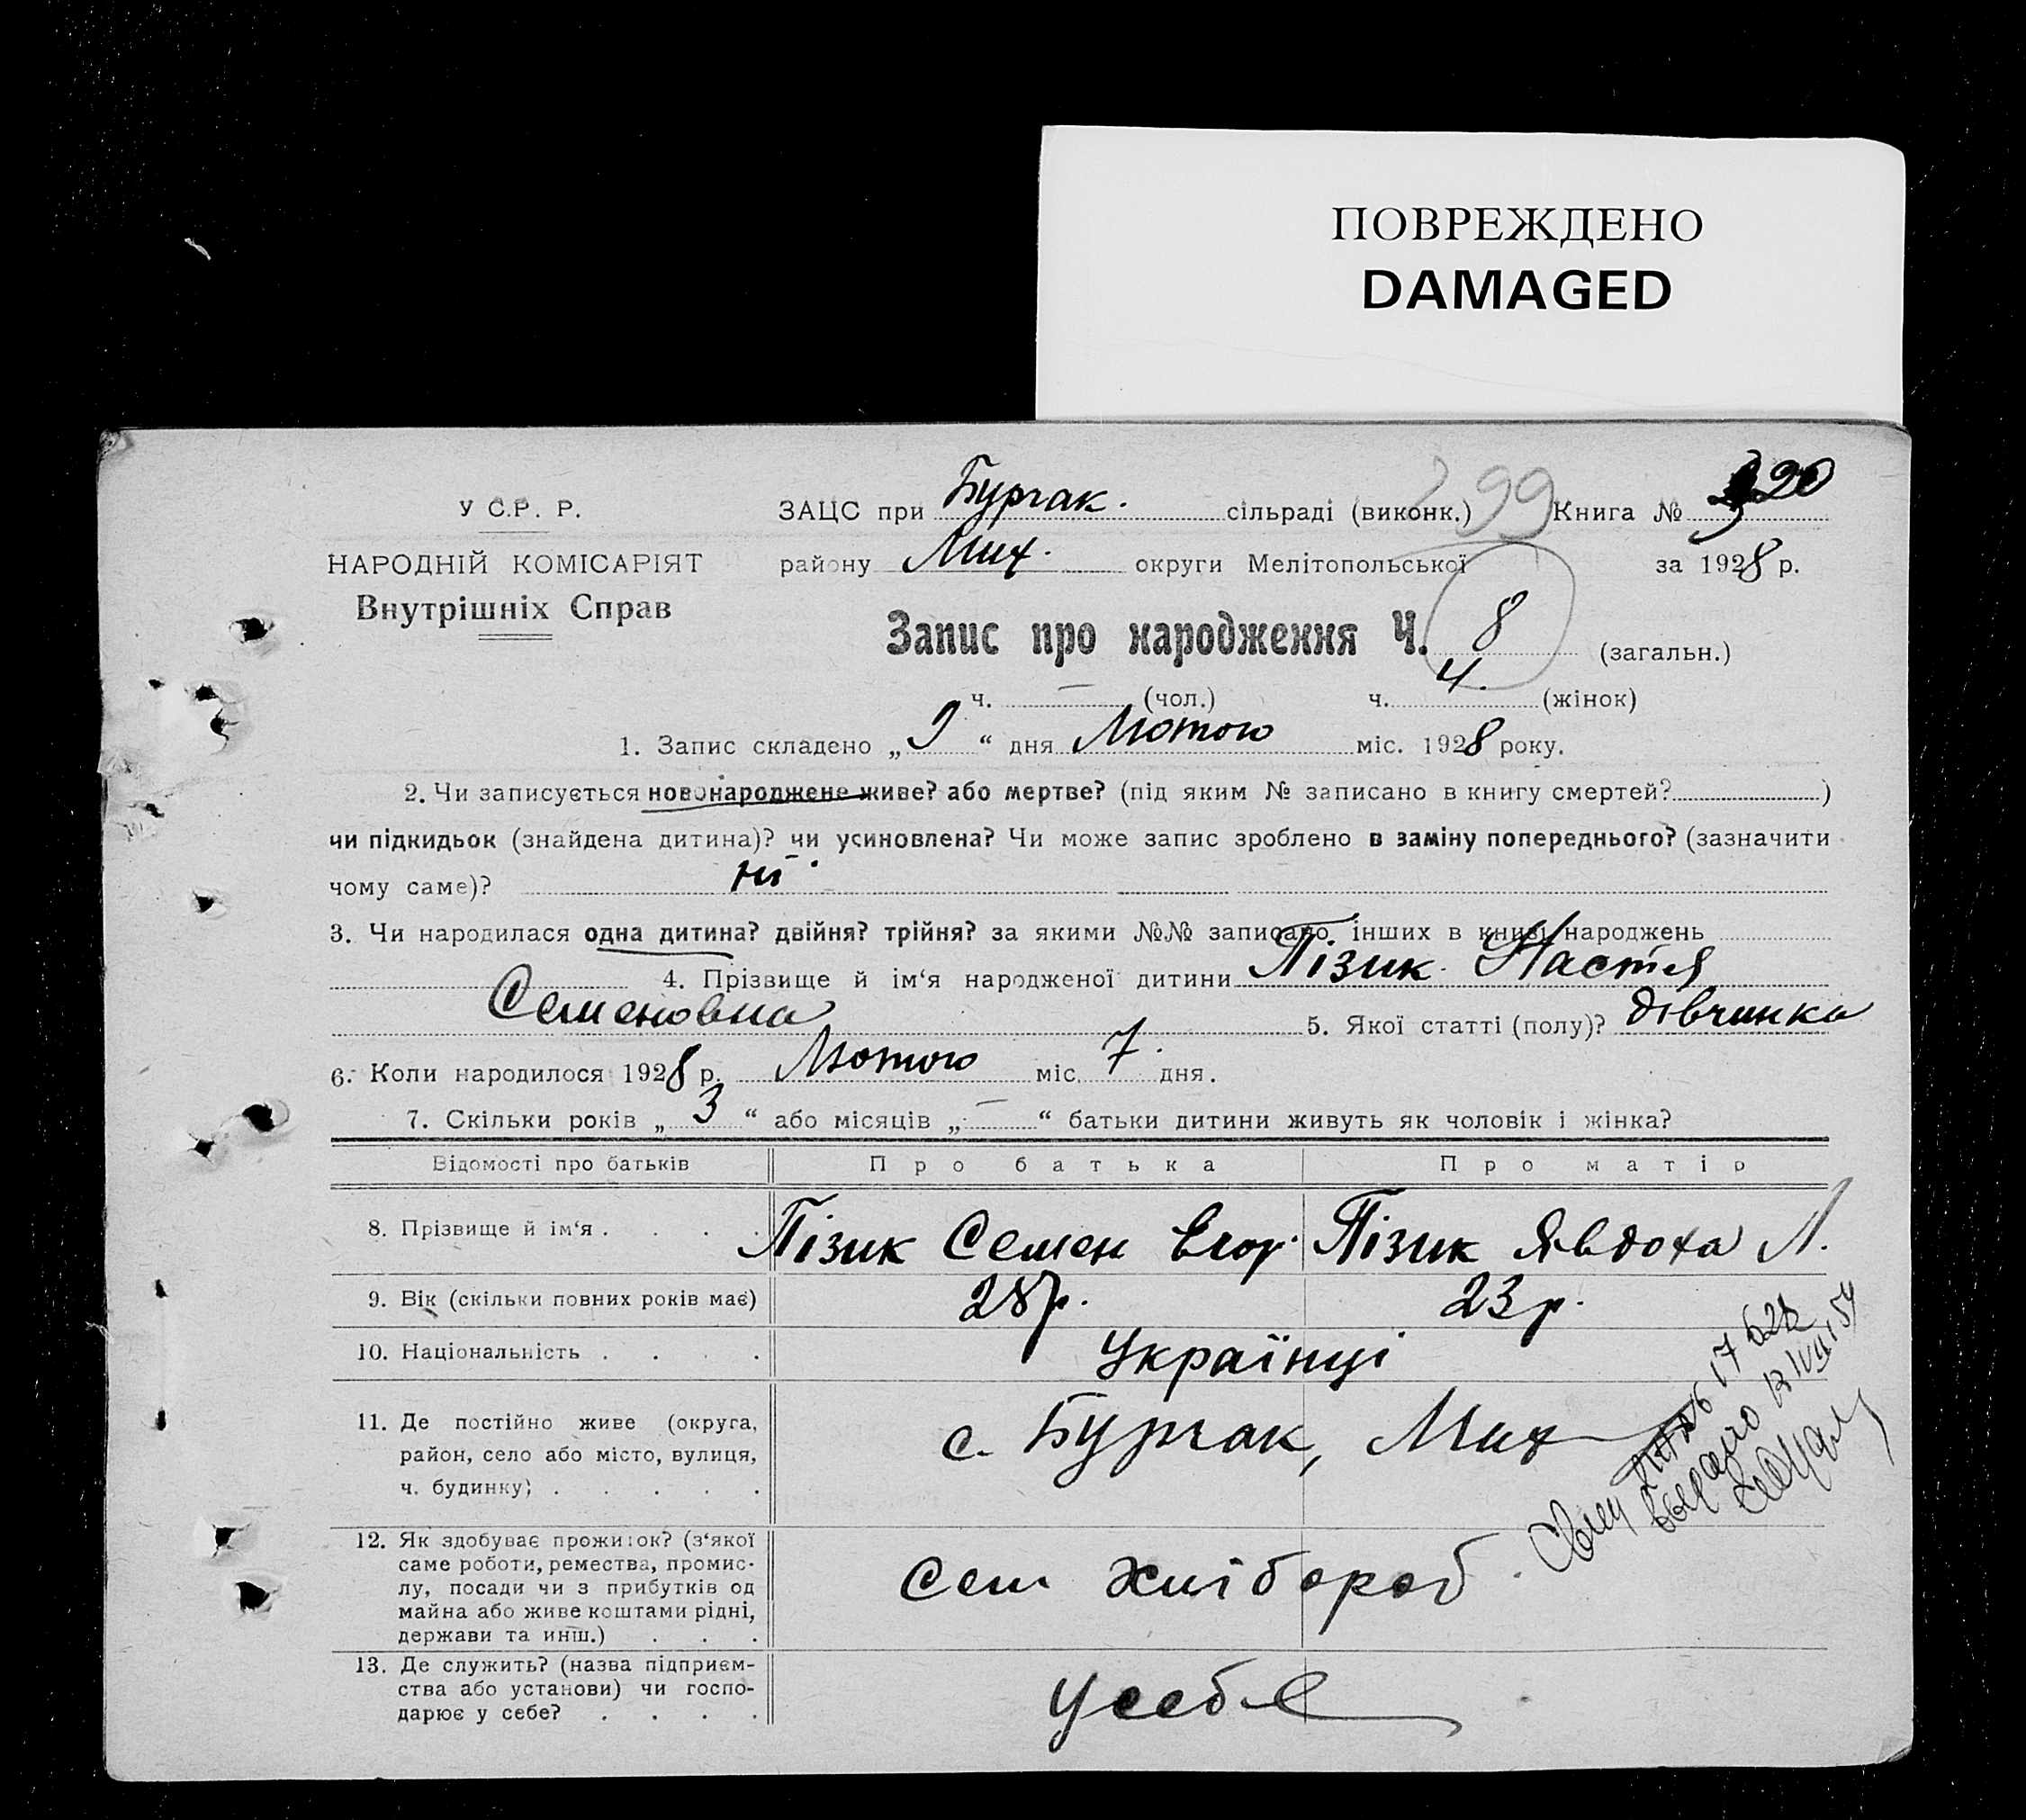 ПОВРЕЖДЕНО
DAMAGED
У С.Р. Р.
НАРОДНІЙ КОМІСАРІЯТ
Внутрішніх Справ
ЗАЦС при Бурчак. сільраді (виконк.) 299 Книга № 20
району Мих. округи Мелітопольської за 1928 р.
Запис про народження Ч. 8 (загальн.)
ч. — (чол.) ч. 4. (жінок)
1. Запис складено „9“ дня Лютого міс. 1928 року.
2. Чи записується новонароджене живе? або мертве? (під яким № записано в книгу смертей? )
чи підкидьок (знайдена дитина)? чи усиновлена? Чи може запис зроблено в заміну попереднього? (зазначити
чому саме)? ні
3. Чи народилася одна дитина? двійня? трійня? за якими №№ записано інших в книзі народжень
4. Прізвище й ім‘я народженої дитини Пізик Настя
Семеновна 5. Якої статті (полу)? дівчинка
6. Коли народилося 1928 р. Лютого міс. 7 дня.
7. Скільки років „3“ або місяців „—“ батьки дитини живуть як чоловік і жінка?
Відомості про батьків Про батька Про матір
8. Прізвище й ім‘я . . . . Пізик Семен Егор. Пізик Явдоха Л.
9. Вік (скільки повних років має) 28 р. 23 р.
10. Національність . . . . Українці
11. Де постійно живе (округа,
район, село або місто, вулиця,
ч. будинку) . . . . .
с. Бурчак, Мих
12. Як здобуває прожиток? (з‘якої
саме роботи, ремества, промис-
лу, посади чи з прибутків од
майна або живе коштами рідні,
держави та инш.) . . .
Сем хлібороб
13. Де служить? (назва підприєм-
ства або установи) чи госпо-
дарює у себе? . . . .
У себе